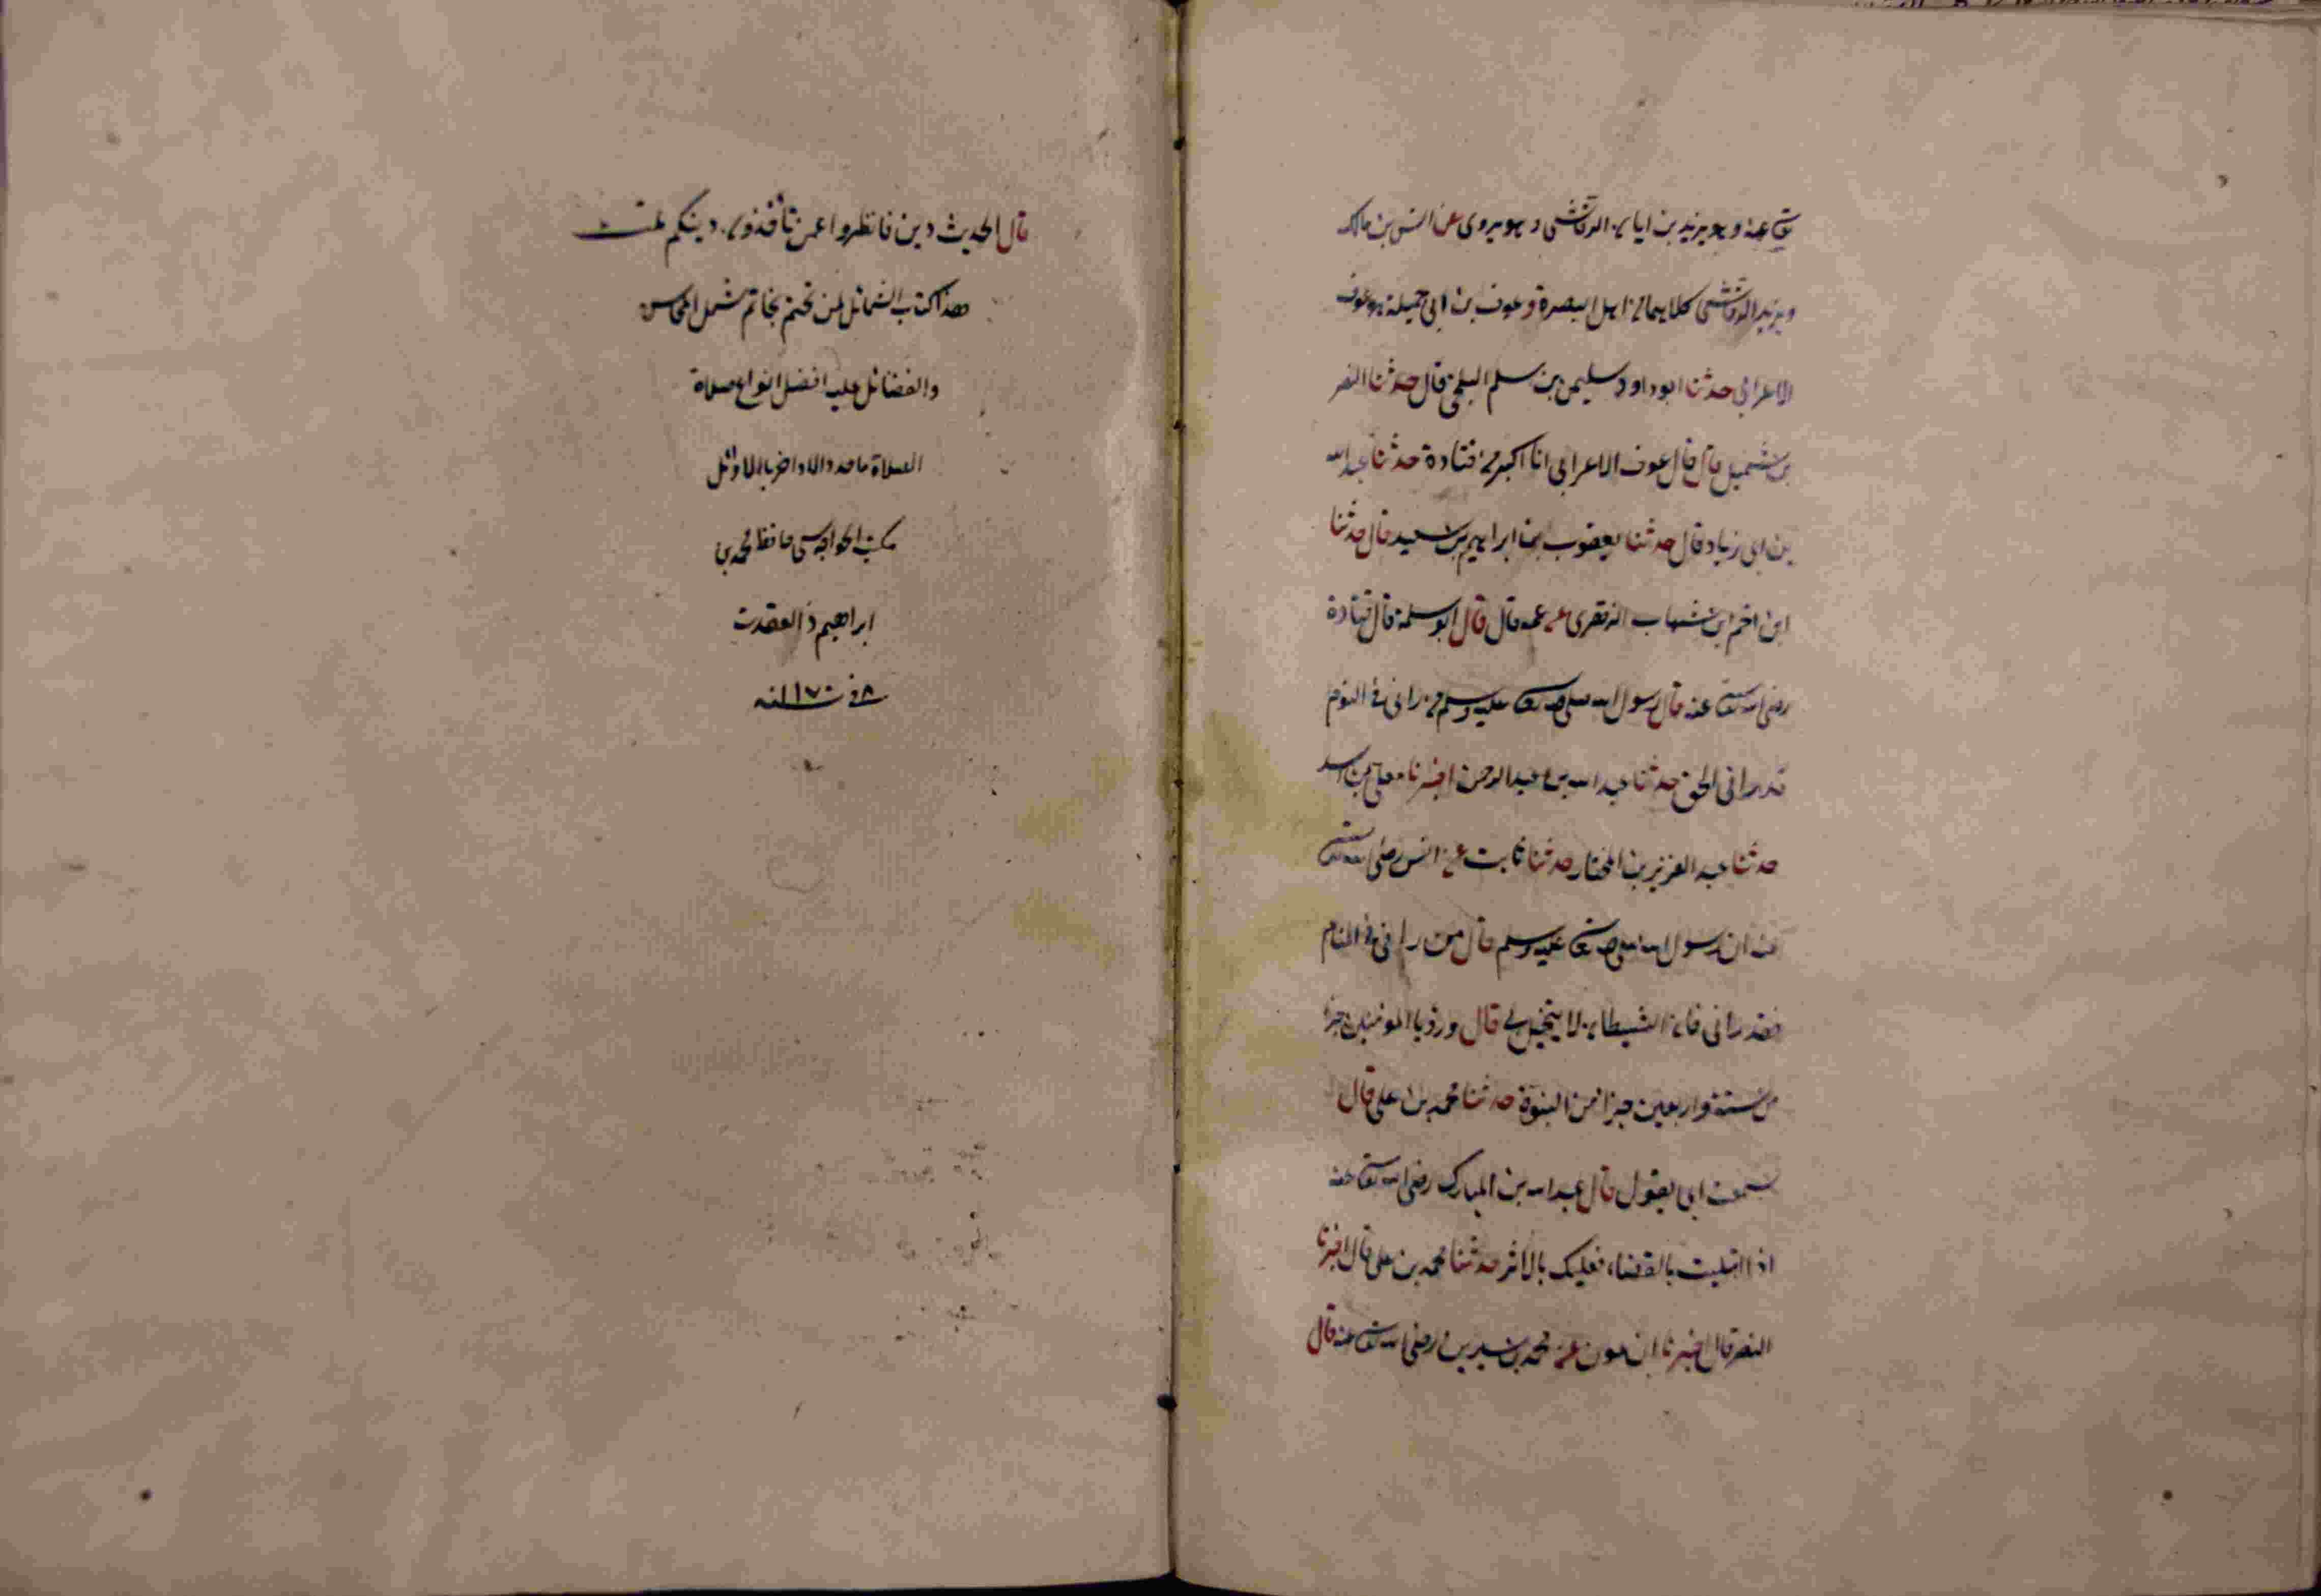 عنه وهو يزيد بن ابان الرقاشى وهو يروى عن انس بن مالك
ويزيد الرقاشى كلاهما من اهل البصرة وعوف بن ابى جميلة هو عوف
الاعرابى حدثنا ابو داود سليمن بن سلم البلخى قال حدثنا النضر
بن شميل قال قال عوف الاعرابى انا اكبر من قتادة حدثنا عبد الله
بن ابى زياد قال حدثنا يعقوب بن ابراهيم بن سعيد قال حدثنا
ابن اخى ابن شهاب الزهرى عن عمه قال قال ابو سلمة قال قتادة
رضى الله تعالى عنه قال رسول الله صلى الله تعالى عليه وسلم من رانى فى النوم
فقد رانى الحق حدثنا عبد الله بن عبد الرحمن اخبرنا معلى بن اسد
حدثنا عبد العزيز بن المختار حدثنا ثابت عن انس رضى الله تعالى
عنه ان رسول الله صلى الله تعالى عليه وسلم قال من رانى فى المنام
فقد رانى فان الشيطان لا يتخيل بى قال ورؤيا المؤمن جزء
من ستة واربعين جزا من النبوة حدثنا محمد بن على قال
سمعت ابى يقول قال عبد الله بن المبارك رضى الله تعالى عنه
اذا ابتليت بالقضاء فعليك بالاثر حدثنا محمد بن على قال اخبرنا
النضر قال اخبرنا ابن عون عن محمد بن سيرين رضى الله تعالى عنه قال
قال الحديث دين فانظروا عمن تأخذون دينكم تمت
هذا كتاب الشمائل لمن تختم بخاتم شمل المحاسن
والفضائل عليه افضل انواع صلاة
الصلاة ما حدد الاواخر بالاوائل
حافظ محمد بن
ابراهيم ذ العقدت
٨ فى سنه ١١٧٠